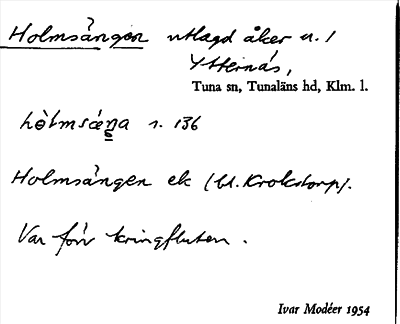 Holmsången utlagd åker u. 1
Ytternäs,
Tuna sn, Tunaläns hd, Klm. l.
s. 136
Holmsången ek (bl. Krokstorp).
Var förr kringfluten.
Ivar Modéer 1954